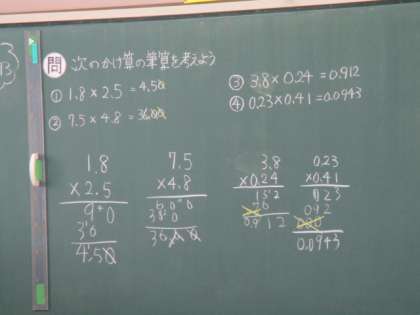 問 次のかけ算の筆算を考えよう
① 1.8×2.5 =4.50
② 7.5×4.8 =36.00
③ 3.8×0.24 =0.912
④ 0.23×0.41 =0.0943
1.8
×2.5
90
36
4.50
7.5
×4.8
600
300
36.00
3.8
×0.24
152
76
0.912
0.23
×0.41
023
092
000
0.0943